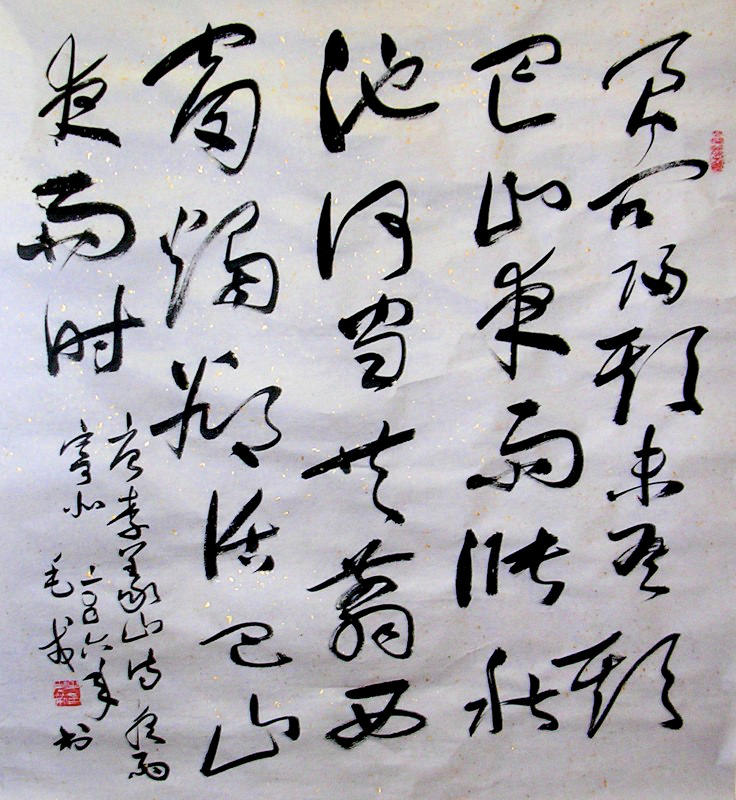 君问归期未有期
巴山夜雨涨秋
池何当共翦西
窗燭却话巴山
夜雨时
唐李義山诗夜雨
寄北
二〇〇六年
毛
书